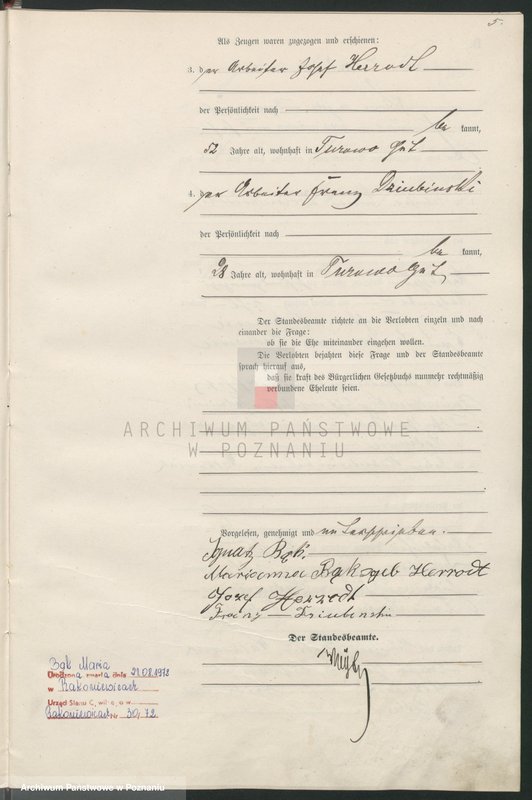 5.
Als Zeugen waren zugezogen und erschienen:
3. der Arbeiter Josef Herrodt
der Persönlichkeit nach
be kannt,
52 Jahre alt, wohnhaft in Turowo Gut
4. der Arbeiter Franz Dziubinski
der Persönlichkeit nach
be kannt,
28 Jahre alt, wohnhaft in Turowo Gut,
Der Standesbeamte richtete an die Verlobten einzeln und nach
einander die Frage:
ob sie die Ehe miteinander eingehen wollen.
Die Verlobten bejahten diese Frage und der Standesbeamte
sprach hierauf aus,
daß sie kraft des Bürgerlichen Gesetzbuchs nunmehr rechtmäßig
verbundene Eheleute seien.
ARCHIWUM PAŃSTWOWE
W POZNANIU
Vorgelesen, genehmigt und unterschrieben.
Ignatz Bąk.
Marianna Bąk geb Herrodt
Josef Herrodt
Franz Dziubinski
Der Standesbeamte.
Bąk Maria
zmarła dnia 21.08.1972
w Rakoniewicach
Urząd Stanu Cywilnego w
Rakoniewicach nr 30/72
Archiwum Państwowe w Poznaniu